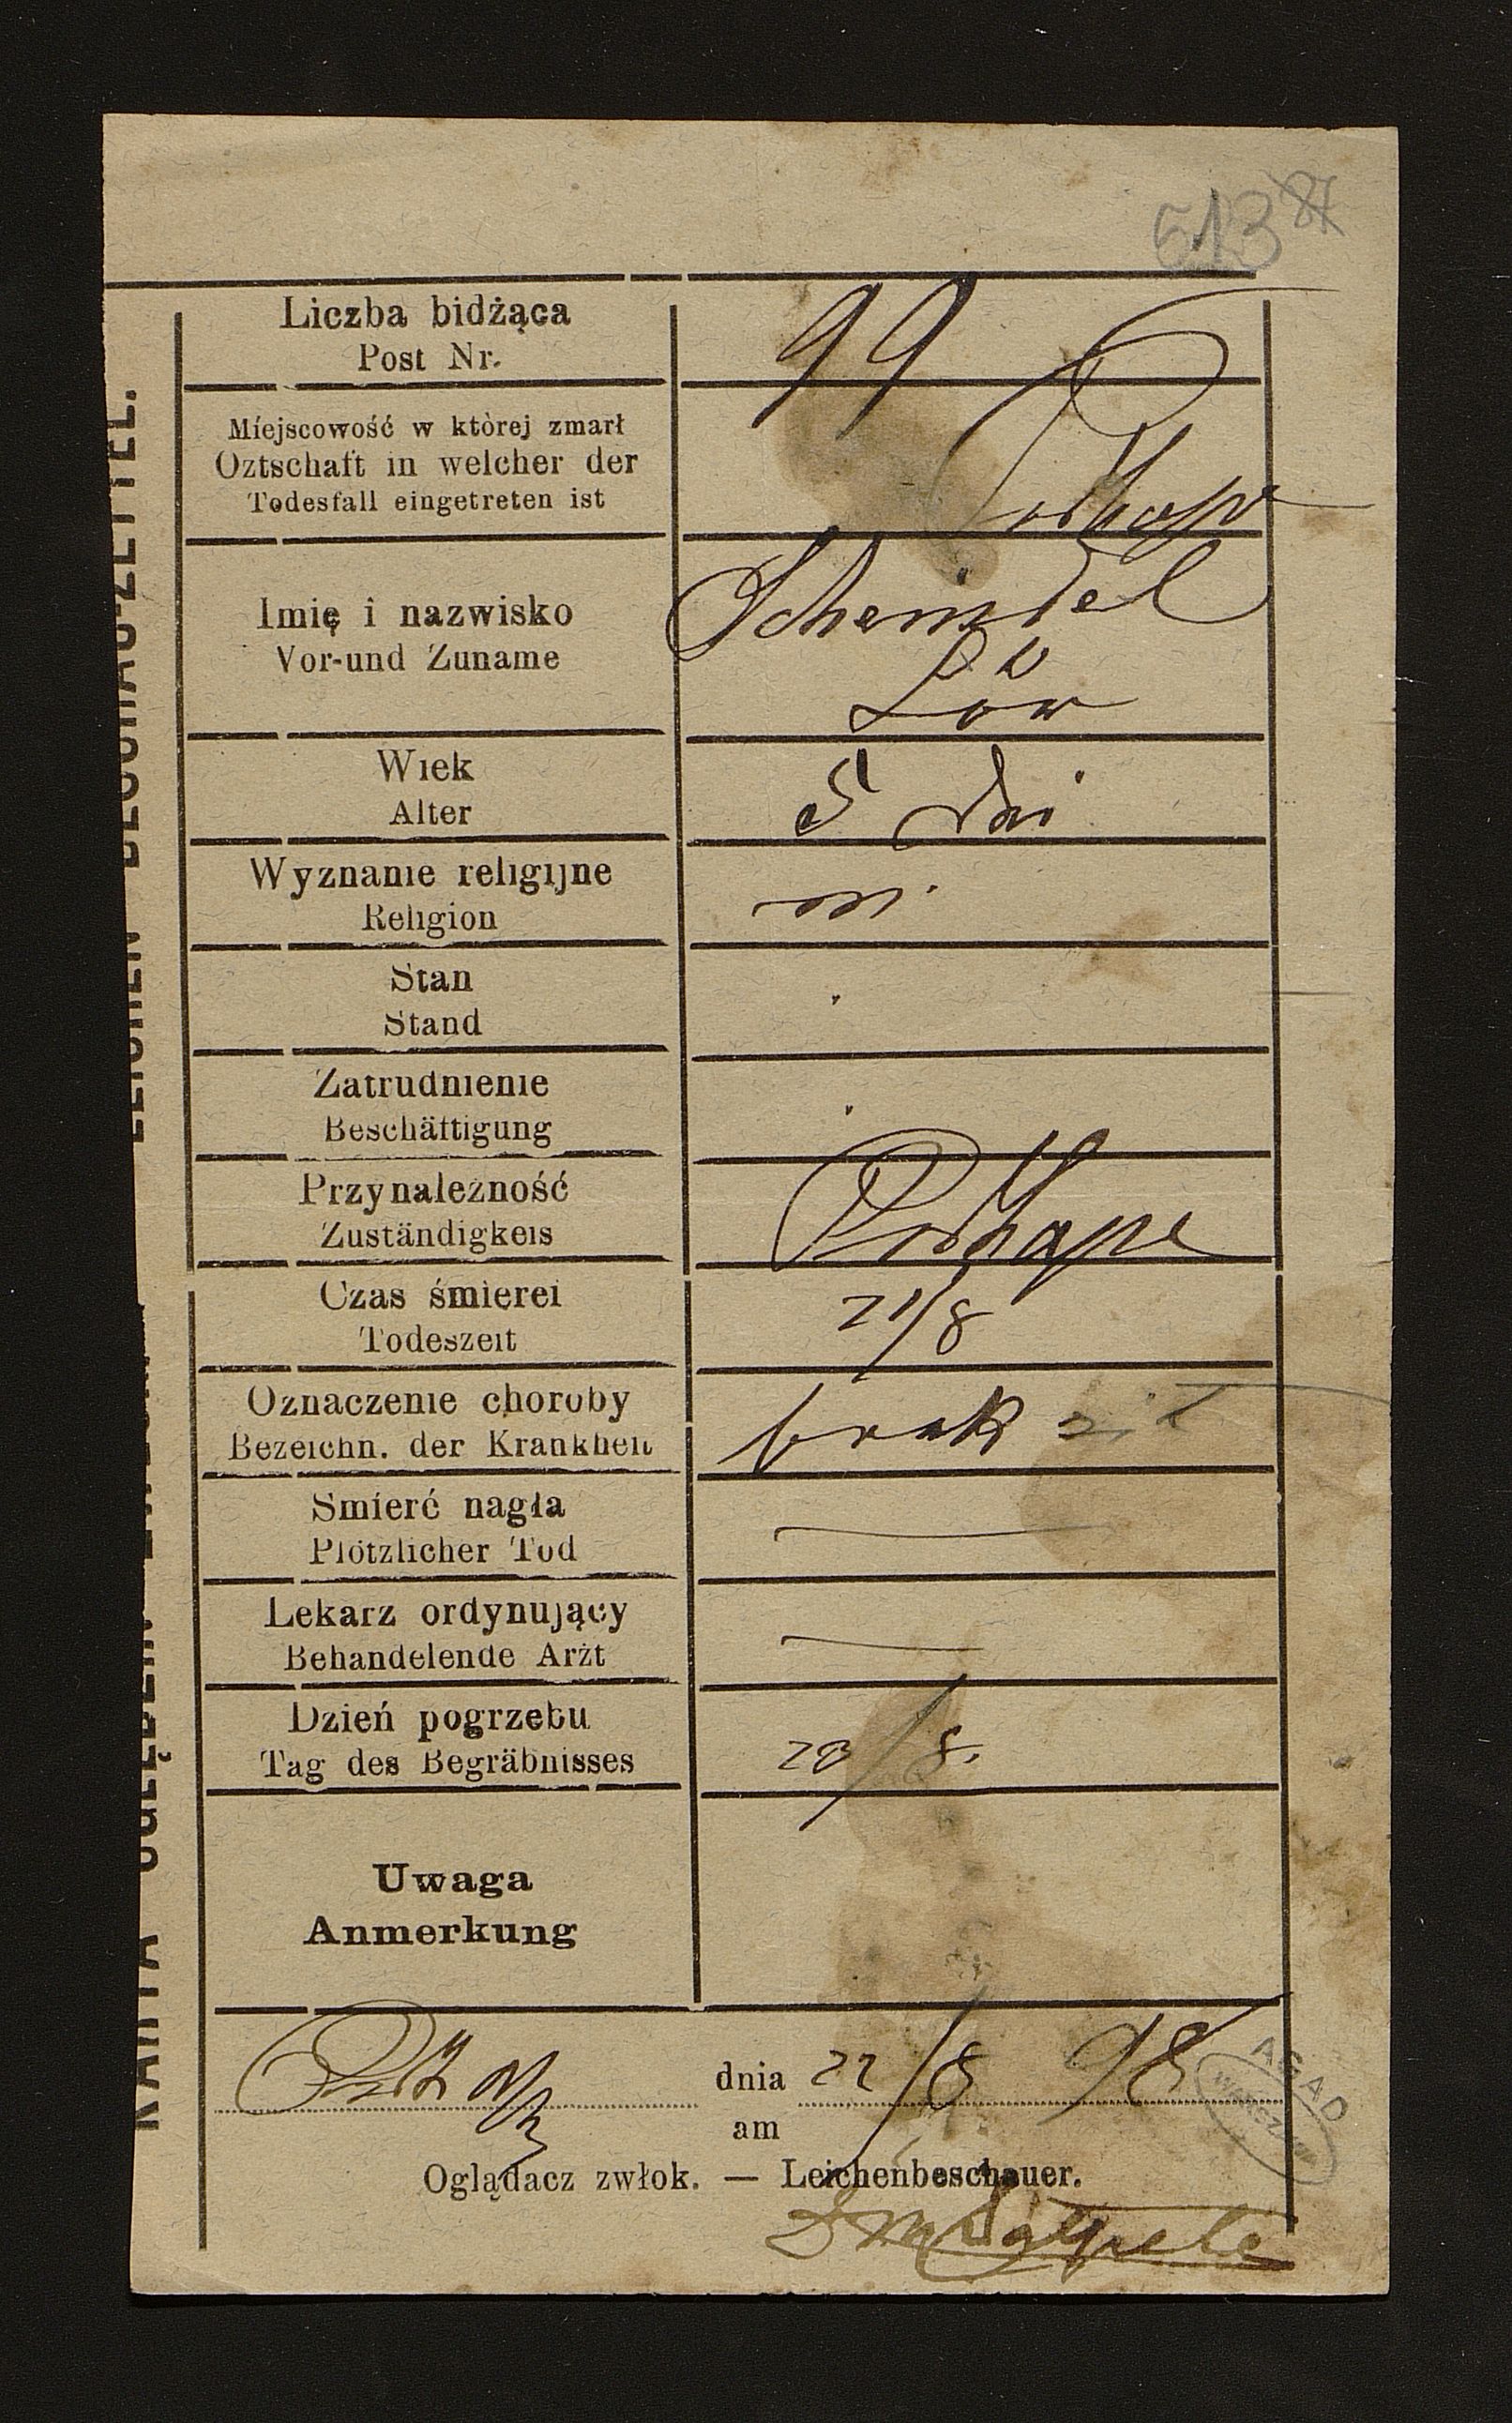 513 87
Liczba bidżąca
Post Nr.
99
Miejscowość w której zmarł
Oztschaft in welcher der
Todesfall eingetreten ist
Imię i nazwisko
Vor-und Zuname
Scheindel
Löw
Wiek
Alter
5 dni
Wyznanie religijne
Religion
Stan
Stand
Zatrudnienie
Beschäftigung
Przynależność
Zuständigkeis
Czas śmierei
Todeszeit
21/8
Oznaczenie choroby
Bezeichn. der Krankheit
brak sił
Smierć nagła
Plötzlicher Tod
Lekarz ordynujący
Behandelende Arżt
Dzień pogrzebu
Tag des Begräbnisses
23/8.
Uwaga
Anmerkung
dnia 22/8 98
am
Oglądacz zwłok. — Leichenbeschauer.
AGAD
KARTA